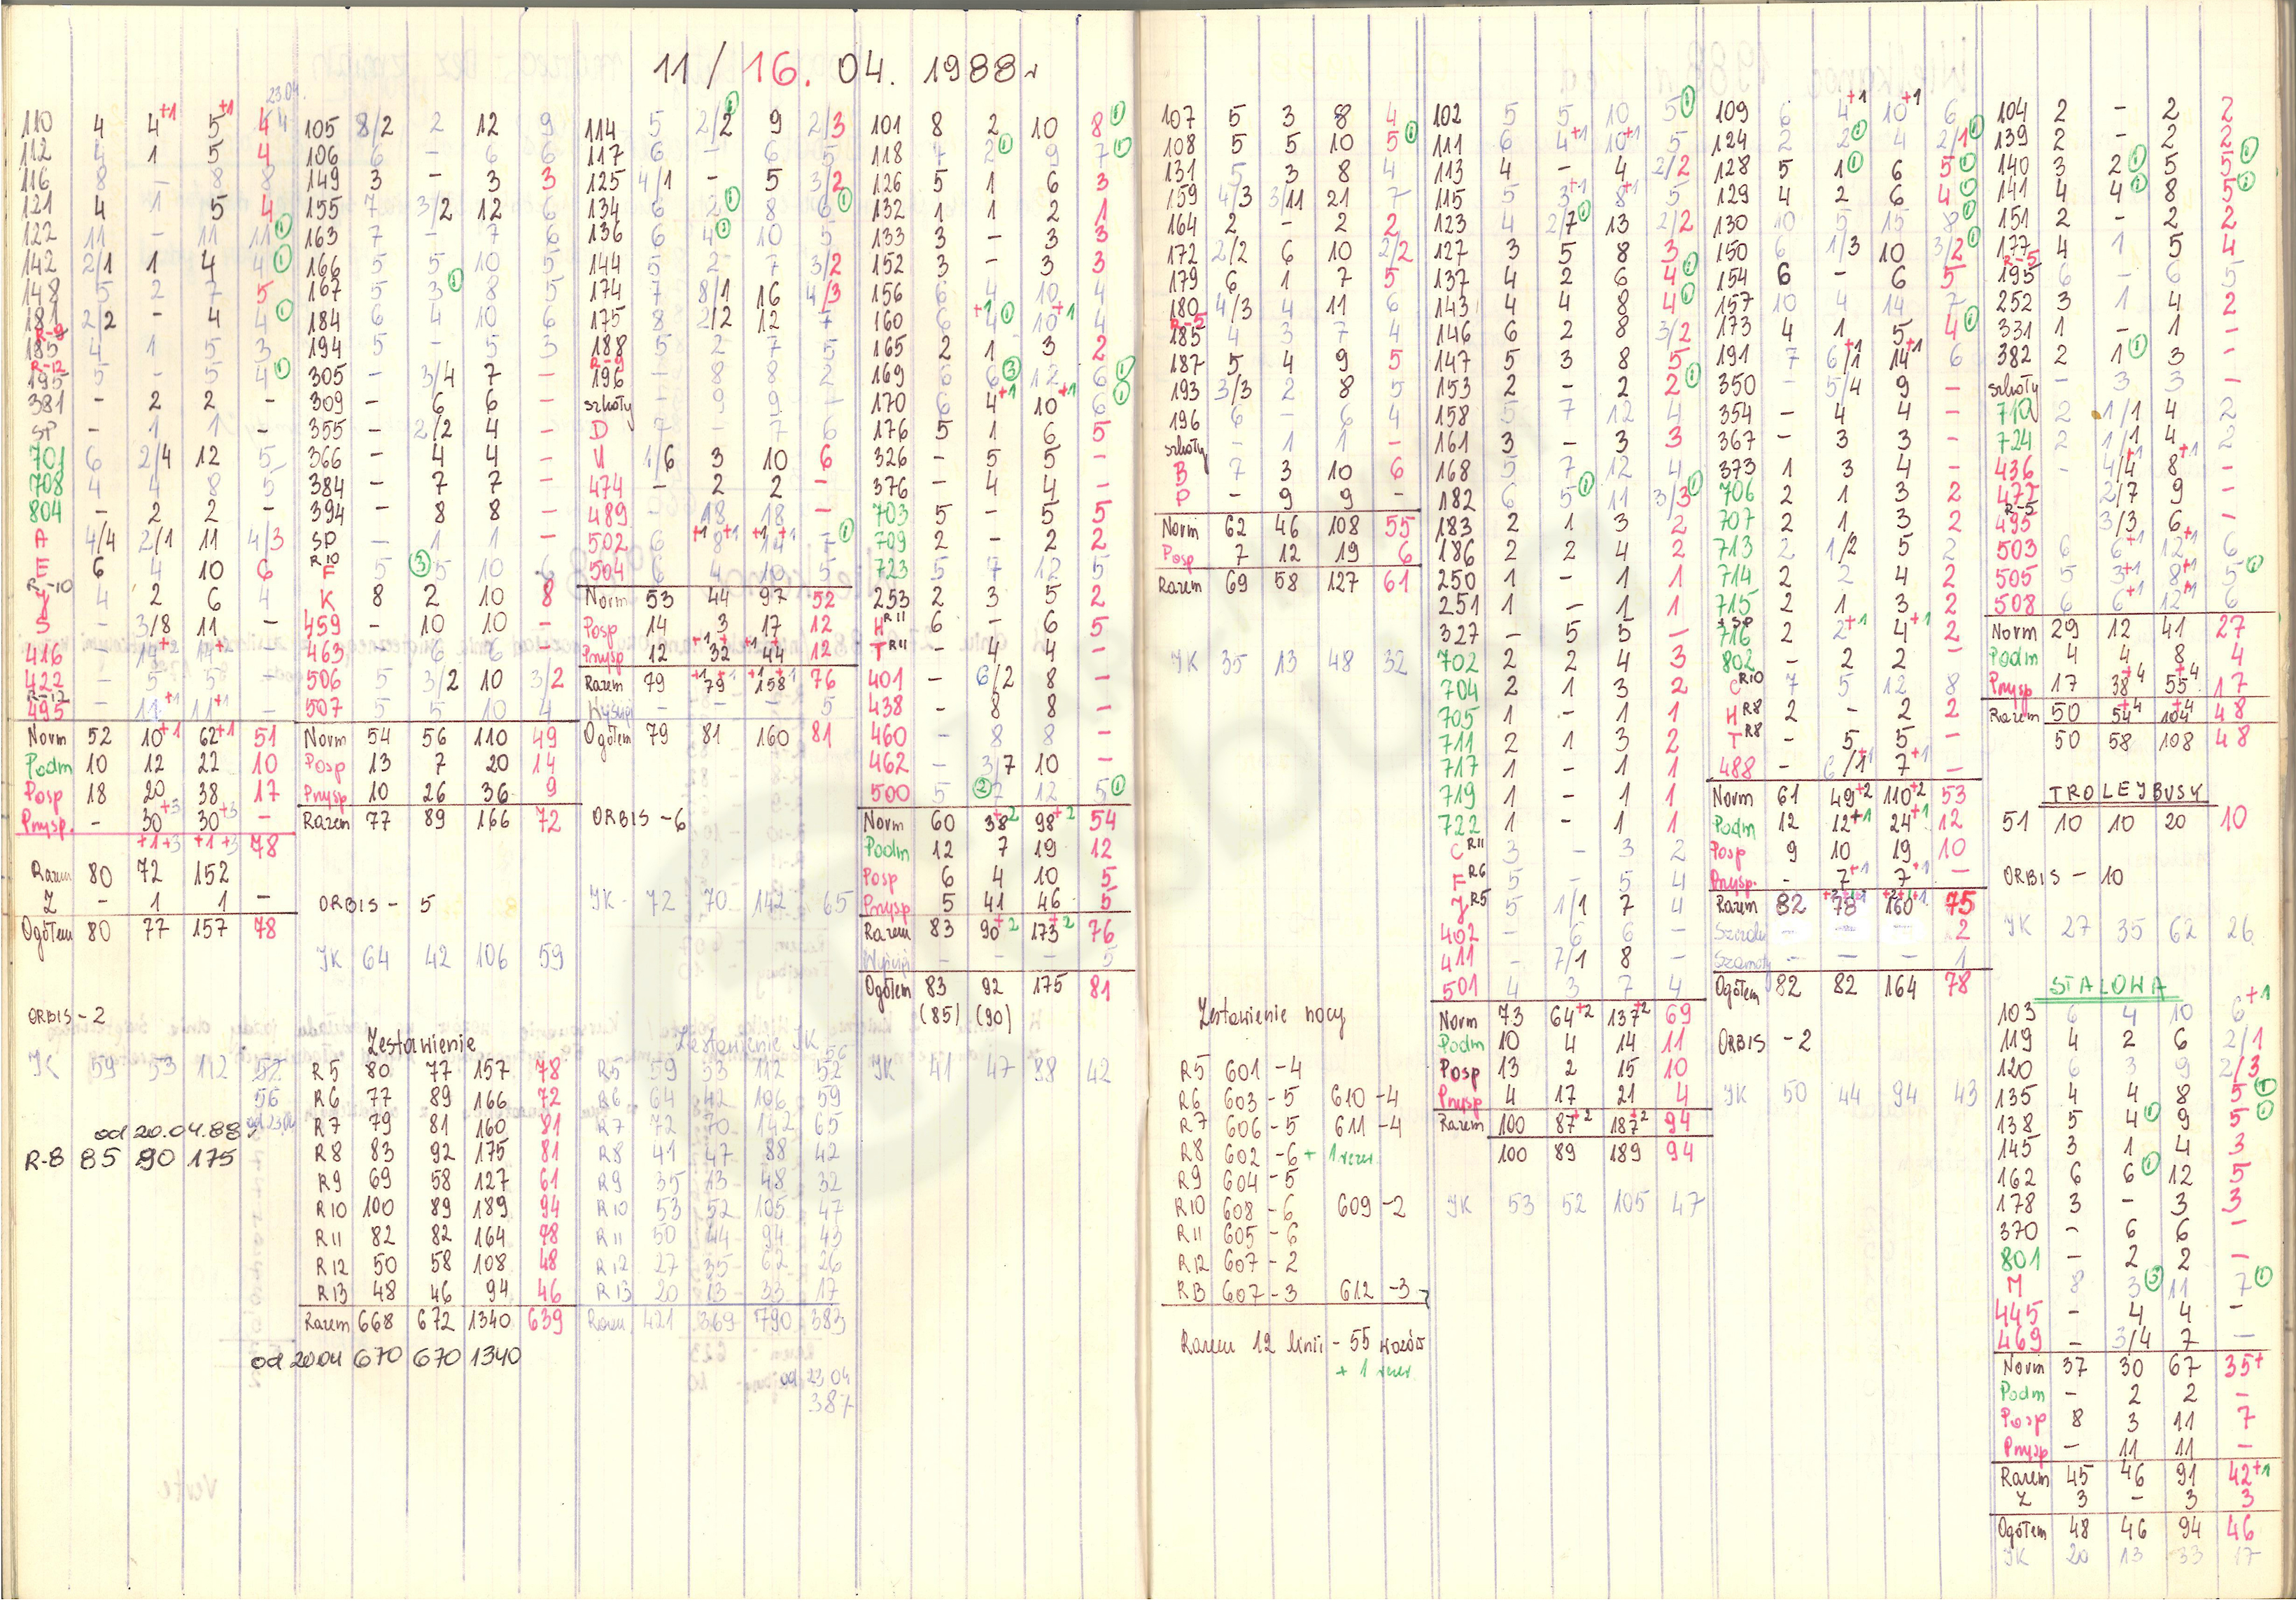 11/16. 04. 1988r
23.04.
110 4 4+1 5+1 4
112 4 1 5 4
116 8 – 8 8
121 4 1 5 4
122 11 – 11 11①
142 2/1 1 4 4①
148 5 2 7 5
181 2/2 – 4 4①
R-9
185 4 1 5 3
R-12
195 5 – 5 4①
381 – 2 2 –
SP – 1 1 –
701 6 2/4 12 5
708 4 4 8 5
804 – 2 2 –
A 4/4 2/1 11 4/3
E 6 4 10 6
R-10
J 4 2 6 4
S – 3/8 11 –
416 – 14+2 14+2 –
422 – 5 5 –
R-12
495 – 11+1 11+1 –
Norm 52 10+1 62+1 51
Podm 10 12 22 10
Posp 18 20 38 17
Pnysp. – 30+3 30+3 –
+1+3 +1+3 78
Razem 80 72 152
Z – 1 1 –
Ogółem 80 77 157 78
ORBIS - 2
JK 59 53 112 52
56
od 23.04
od 20.04.88r
R-8 85 90 175
105 8/2 2 12 9
106 6 – 6 6
149 3 – 3 3
155 7 3/2 12 6
163 7 – 7 6
166 5 5 10 5
167 5 3① 8 5
184 6 4 10 6
194 5 – 5 3
305 – 3/4 7 –
309 – 6 6 –
355 – 2/2 4 –
366 – 4 4 –
384 – 7 7 –
394 – 8 8 –
SP – 1 1 –
R10
F 5 ③5 10 6
K 8 2 10 8
459 – 10 10 –
463 – 6 6 –
506 5 3/2 10 3/2
507 5 5 10 4
Norm 54 56 110 49
Posp 13 7 20 14
Pnysp 10 26 36 9
Razem 77 89 166 72
ORBIS - 5
JK 64 42 106 59
Zestawienie
R5 80 77 157 78
R6 77 89 166 72
R7 79 81 160 81
R8 83 92 175 81
R9 69 58 127 61
R10 100 89 189 94
R11 82 82 164 78
R12 50 58 108 48
R13 48 46 94 46
Razem 668 672 1340 639
od 20.04 670 670 1340
114 5 2/2① 9 2/3
117 6 – 6 5
125 4/1 – 5 3/2
134 6 2① 8 6①
136 6 4① 10 5
144 5 2 7 3/2
174 7 8/1 16 4/3
175 8 2/2 12 7
188 5 2 7 5
R-9
196 – 8 8 2
szkoły – 9 9 –
D 7 – 7 6
U 1/6 3 10 6
474 – 2 2 –
489 – 18 18 –
502 6 8+1+1 14+1+1 7①
504 6 4 10 5
Norm 53 44 97 52
Posp 14 3 17 12
Pnysp 12 32+1 44+1 12
Razem 79 79+1+1 158+1+1 76
Wyścigi – – – 5
Ogółem 79 81 160 81
ORBIS - 6
JK - 72 70 142 65
Zestawienie JK
56
R5 59 53 112 52
R6 64 42 106 59
R7 72 70 142 65
R8 41 47 88 42
R9 35 13 48 32
R10 53 52 105 47
R11 50 44 94 43
R12 27 35 62 26
R13 20 13 33 17
Razem 421 369 790 383
od 23 04
387
101 8 2 10 8①
118 7 2① 9 7①
126 5 1 6 3
132 1 1 2 1
133 3 – 3 3
152 3 – 3 3
156 6 4 10 4
160 6 4+1① 10+1 4
165 2 1 3 2
169 6 6③ 12 6①
170 6 4+1 10+1 6①
176 5 1 6 5
326 – 5 5 –
376 – 4 4 –
703 5 – 5 5
709 2 – 2 2
723 5 7 12 5
253 2 3 5 2
H R11 6 – 6 5
T R11 – 4 4 –
401 – 6/2 8 –
438 – 8 8 –
460 – 8 8 –
462 – 3/7 10 –
500 5 ②7 12 5①
Norm 60 38+2 98+2 54
Podm 12 7 19 12
Posp 6 4 10 5
Pnysp 5 41 46 5
Razem 83 90+2 173+2 76
Wyścigi – – – 5
Ogółem 83 92 175 81
(85) (90)
JK 41 47 88 42
107 5 3 8 4
108 5 5 10 5①
131 5 3 8 4
159 4/3 3/11 21 7
164 2 – 2 2
172 2/2 6 10 2/2
179 6 1 7 5
180 4/3 4 11 6
R-5
185 4 3 7 4
187 5 4 9 5
193 3/3 2 8 5
196 6 – 6 4
szkoły – 1 1 –
B 7 3 10 6
P – 9 9 –
Norm 62 46 108 55
Posp 7 12 19 6
Razem 69 58 127 61
JK 35 13 48 32
Zestawienie nocy
R5 601 -4
R6 603 -5 610 -4
R7 606 -5 611 -4
R8 602 -6 + 1 rezer
R9 604 -5
R10 608 -6 609 -2
R11 605 -6
R12 607 -2
R13 607 -3 612 -3
Razem 12 linii - 55 wozów
+ 1 rezer
102 5 5 10 5①
111 6 4+1 10+1 5
113 4 – 4 2/2
115 5 3+1 8+1 5
123 4 2/7① 13 2/2
127 3 5 8 3
137 4 2 6 4①
143 4 4 8 4①
146 6 2 8 3/2
147 5 3 8 5
153 2 – 2 2①
158 5 7 12 4
161 3 – 3 3
168 5 7 12 4
182 6 5① 11 3/3①
183 2 1 3 2
186 2 2 4 2
250 1 – 1 1
251 1 – 1 1
327 – 5 5 –
702 2 2 4 3
704 2 1 3 2
705 1 – 1 1
711 2 1 3 2
717 1 – 1 1
719 1 – 1 1
722 1 – 1 1
C R11 3 – 3 2
F R6 5 – 5 4
J R5 5 1/1 7 4
402 – 6 6 –
411 – 7/1 8 –
501 4 3 7 4
Norm 73 64+2 137+2 69
Podm 10 4 14 11
Posp 13 2 15 10
Pnysp 4 17 21 4
Razem 100 87+2 187+2 94
100 89 189 94
JK 53 52 105 47
109 6 4+1 10+1 6
124 2 2① 4 2/1①
128 5 1① 6 5①
129 4 2 6 4①
130 10 5 15 8①
150 6 1/3 10 3/2①
154 6 – 6 5
157 10 4 14 7
173 4 1 5 4①
191 7 6/1+1 14+1 6
350 – 5/4 9 –
354 – 4 4 –
367 – 3 3 –
373 1 3 4 –
706 2 1 3 2
707 2 1 3 2
713 2 1/2 5 2
714 2 2 4 2
715 2 1 3 2
716 2 2+1 4+1 2
802 – 2 2 –
C R10 7 5 12 8
H R8 2 – 2 2
T R8 – 5 5 –
488 – 6/1+1 7+1 –
Norm 61 49+2 110+2 53
Podm 12 12+1 24+1 12
Posp 9 10 19 10
Pnysp. – 7+1 7+1 –
Razem 82 78+2+1+1 160+2+1+1 75
– – – 2
– – – 1
Ogółem 82 82 164 78
ORBIS - 2
JK 50 44 94 43
104 2 – 2 2
139 2 – 2 2
140 3 2① 5 5①
141 4 4① 8 5①
151 2 – 2 2
177 4 1 5 4
R-5
195 6 – 6 5
252 3 1 4 2
331 1 – 1 –
382 2 1① 3 –
szkoły – 3 3 –
710 2 1/1 4 2
724 2 1/1 4 2
436 – 4/4+1 8+1 –
477 – 2/7 9 –
R-5
495 – 3/3 6 –
503 6 6+1 12+1 6
505 5 3+1 8+1 5①
508 6 6+1 12+1 6
Norm 29 12 41 27
Podm 4 4 8 4
Pnysp 17 38+4 55+4 17
Razem 50 54+4 104+4 48
50 58 108 48
TROLEJBUSY
51 10 10 20 10
ORBIS - 10
JK 27 35 62 26
STALOWA
103 6 4 10 6+1
119 4 2 6 2/1
120 6 3 9 2/3
135 4 4 8 5①
138 5 4① 9 5①
145 3 1 4 3
162 6 6① 12 5
178 3 – 3 3
370 – 6 6 –
801 – 2 2 –
M 8 3③ 11 7①
445 – 4 4 –
469 – 3/4 7 –
Norm 37 30 67 35+
Podm – 2 2 –
Posp 8 3 11 7
Pnysp – 11 11 –
Razem 45 46 91 42+1
Z 3 – 3 3
Ogółem 48 46 94 46
JK 20 13 33 17